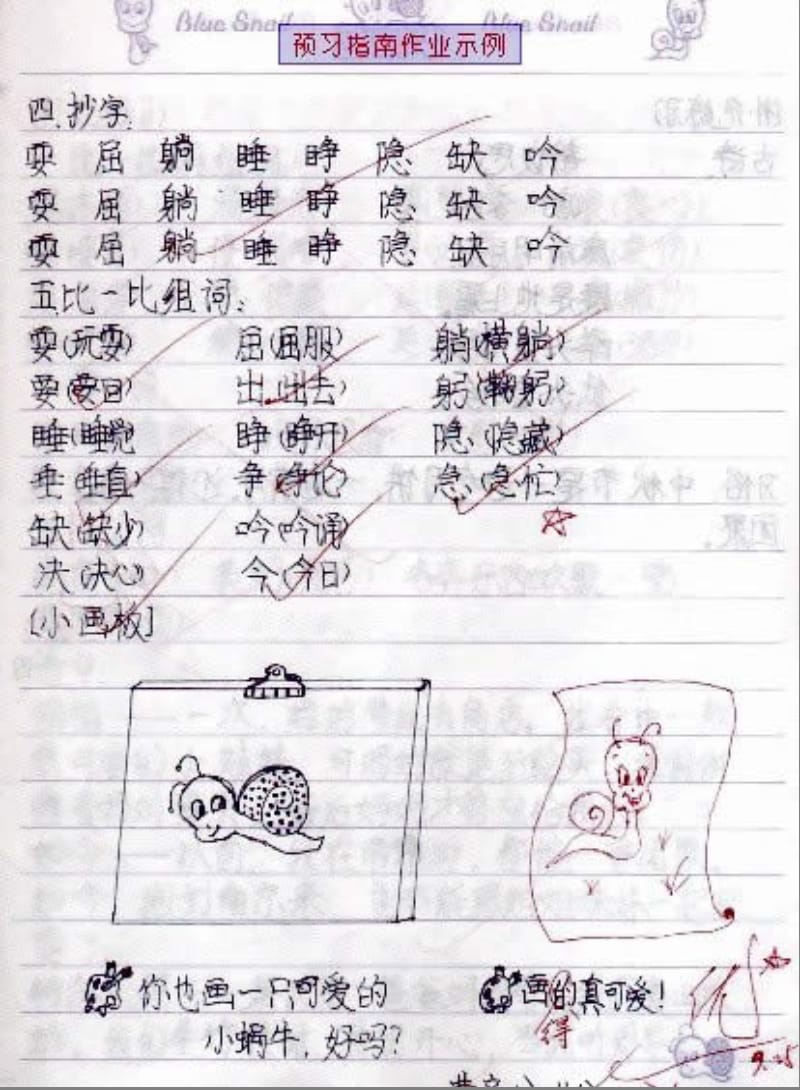 Blue Snail Blue Snail
预习指南作业示例
四.抄字.
耍 屈 躺 睡 睁 隐 缺 吟
耍 屈 躺 睡 睁 隐 缺 吟
耍 屈 躺 睡 睁 隐 缺 吟
五比一比组词:
耍(玩耍) 屈(屈服) 躺(横躺)
要(要日) 出(出去) 躬(鞠躬)
睡(睡觉) 睁(睁开) 隐(隐藏)
垂(垂直) 争(争论) 急(急忙)
缺(缺少) 吟(吟诵)
决(决心) 今(今日)
[小画板]
你也画一只可爱的 画的真可爱!
小蜗牛,好吗? 得
优
9.25